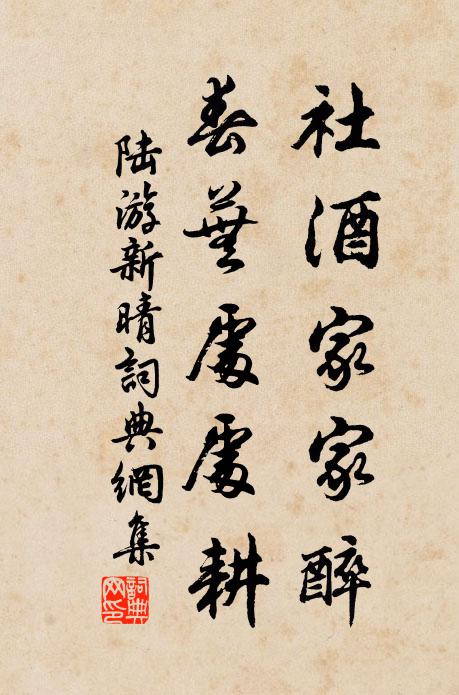 社酒家家醉
春蕪處處耕
陸游新晴詞典網集
詞典網印